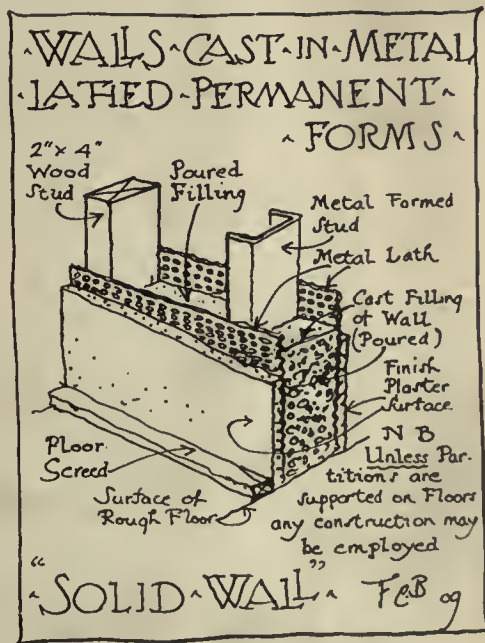 WALLS CAST IN METAL
LATHED PERMANENT
FORMS
2" x 4"
Wood
Stud
Poured
Filling
Metal Formed
Stud
Metal Lath
Cast Filling
of Wall
(Poured)
Finish
Plaster
Surface
Floor
Screed
Surface of
Rough Floor
N B
Unless Par-
titions are
supported on Floors
any construction may
be employed
"SOLID WALL"
09